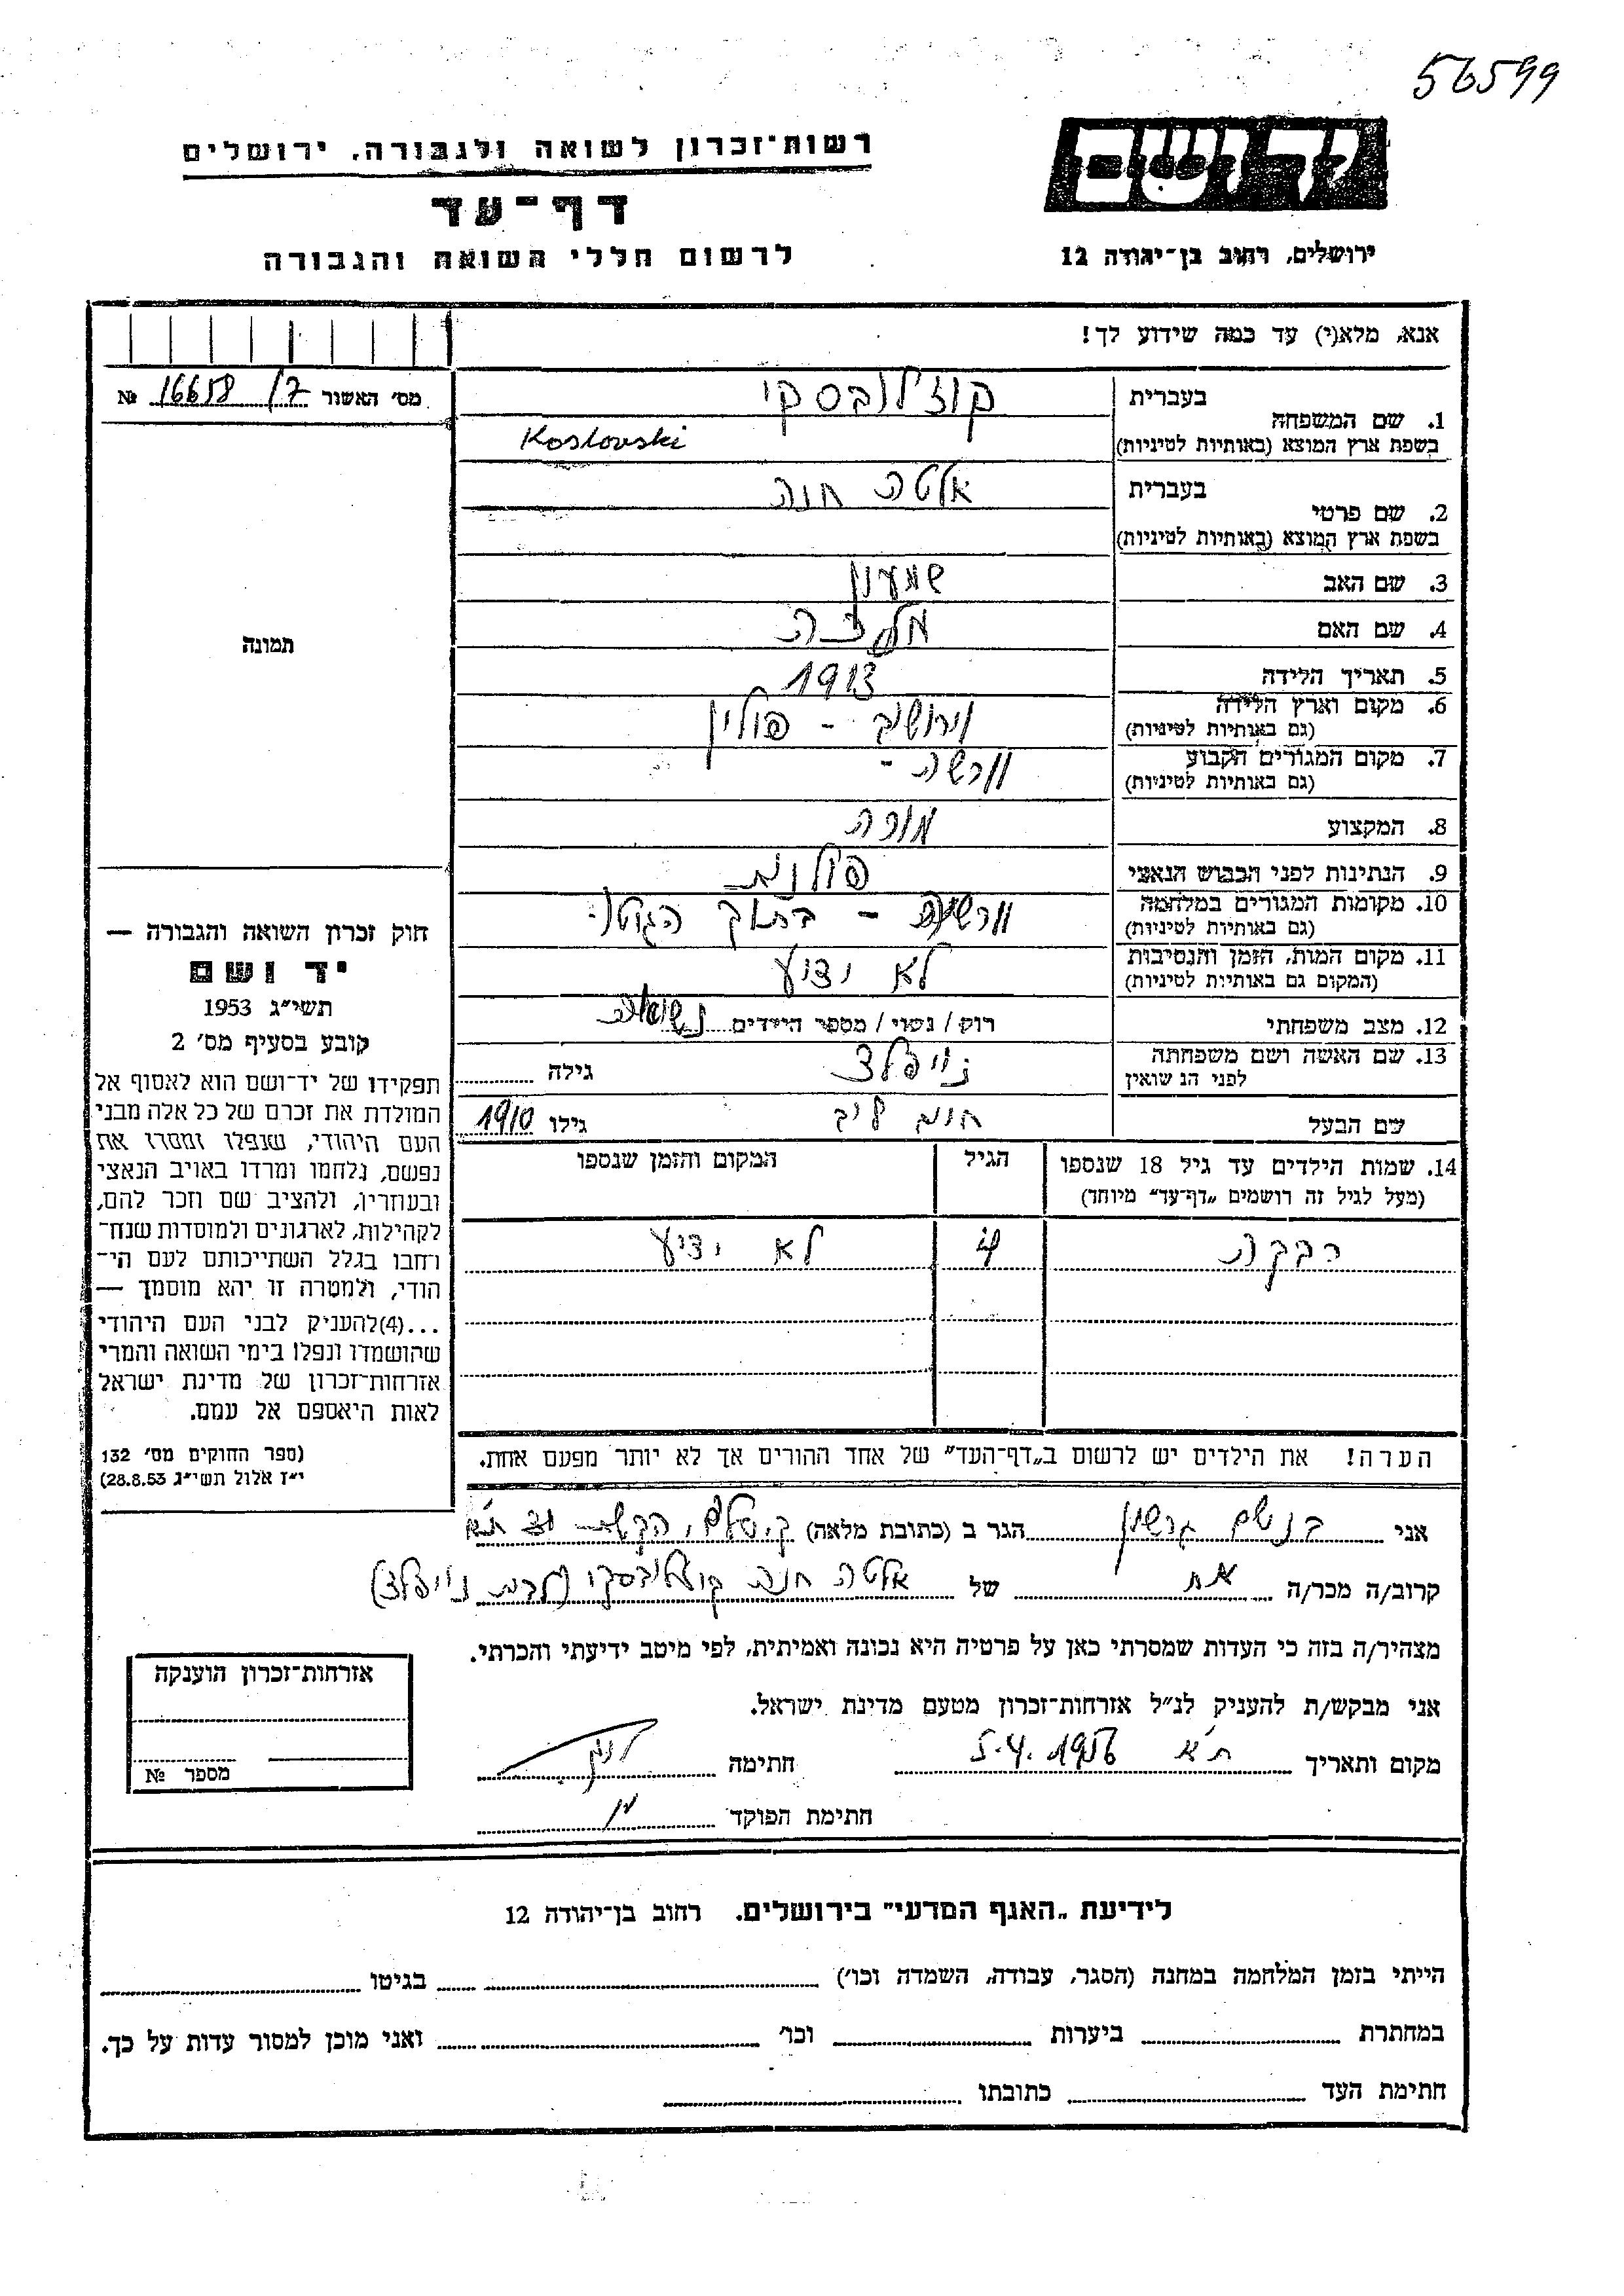 56599
יד ושם
רשות־זכרון לשואה ולגבורה, ירושלים
דף־עד
לרשום חללי השואה והגבורה
ירושלים, רחוב בן־יהודה 12
אנא, מלא(י) עד כמה שידוע לך!
מס׳ האשור 16658/7 №
1. שם המשפחה
בעברית קוזלובסקי
בשפת ארץ המוצא (באותיות לטיניות) Koslovski
2. שם פרטי
בעברית אלטה חנה
בשפת ארץ המוצא (באותיות לטיניות)
3. שם האב שמעון
4. שם האם מלכה
5. תאריך הלידה 1913
6. מקום וארץ הלידה - פולין
(גם באותיות לטיניות)
7. מקום המגורים הקבוע וורשה -
(גם באותיות לטיניות)
8. המקצוע מורה
9. הנתינות לפני הכבוש הנאצי פולנית
10. מקומות המגורים במלחמה וורשה - בתוך הגטו
(גם באותיות לטיניות)
11. מקום המות, הזמן והנסיבות לא ידוע
(המקום גם באותיות לטיניות)
12. מצב משפחתי רווק / נשוי / מספר הילדים נשואה
13. שם האשה ושם משפחתה נויפלד גילה
לפני הנשואין
שם הבעל חיים ליב גילו 1910
14. שמות הילדים עד גיל 18 שנספו הגיל המקום והזמן שנספו
(מעל לגיל זה רושמים „דף־עד״ מיוחד)
רבקה 4 לא ידוע
הערה! את הילדים יש לרשום ב„דף־העד״ של אחד ההורים אך לא יותר מפעם אחת.
תמונה
חוק זכרון השואה והגבורה —
יד ושם
תשי״ג 1953
קובע בסעיף מס׳ 2
תפקידו של יד־ושם הוא לאסוף אל
המולדת את זכרם של כל אלה מבני
העם היהודי, שנפלו ומסרו את
נפשם, נלחמו ומרדו באויב הנאצי
ובעוזריו, ולהציב שם וזכר להם,
לקהילות, לארגונים ולמוסדות שנח־
רחבו בגלל השתייכותם לעם הי־
הודי, ולמטרה זו יהא מוסמך —
...(4)להעניק לבני העם היהודי
שהושמדו ונפלו בימי השואה והמרי
אזרחות־זכרון של מדינת ישראל
לאות היאספם אל עמם.
(ספר החוקים מס׳ 132
י״ז אלול תשי״ג 28.8.53)
אני גרשון הגר ב (כתובת מלאה)
קרוב/ה מכר/ה אח של אלטה חנה קוזלובסקי (לבית נויפלד)
מצהיר/ה בזה כי העדות שמסרתי כאן על פרטיה היא נכונה ואמיתית, לפי מיטב ידיעתי והכרתי.
אני מבקש/ת להעניק לנ״ל אזרחות־זכרון מטעם מדינת ישראל.
מקום ותאריך ת״א 5.4.1956 חתימה
חתימת הפוקד
אזרחות־זכרון הוענקה
מספר №
לידיעת „האגף המדעי״ בירושלים. רחוב בן־יהודה 12
הייתי בזמן המלחמה במחנה (הסגר, עבודה, השמדה וכו׳) בגיטו
במחתרת ביערות וכו׳ ואני מוכן למסור עדות על כך.
חתימת העד כתובתו